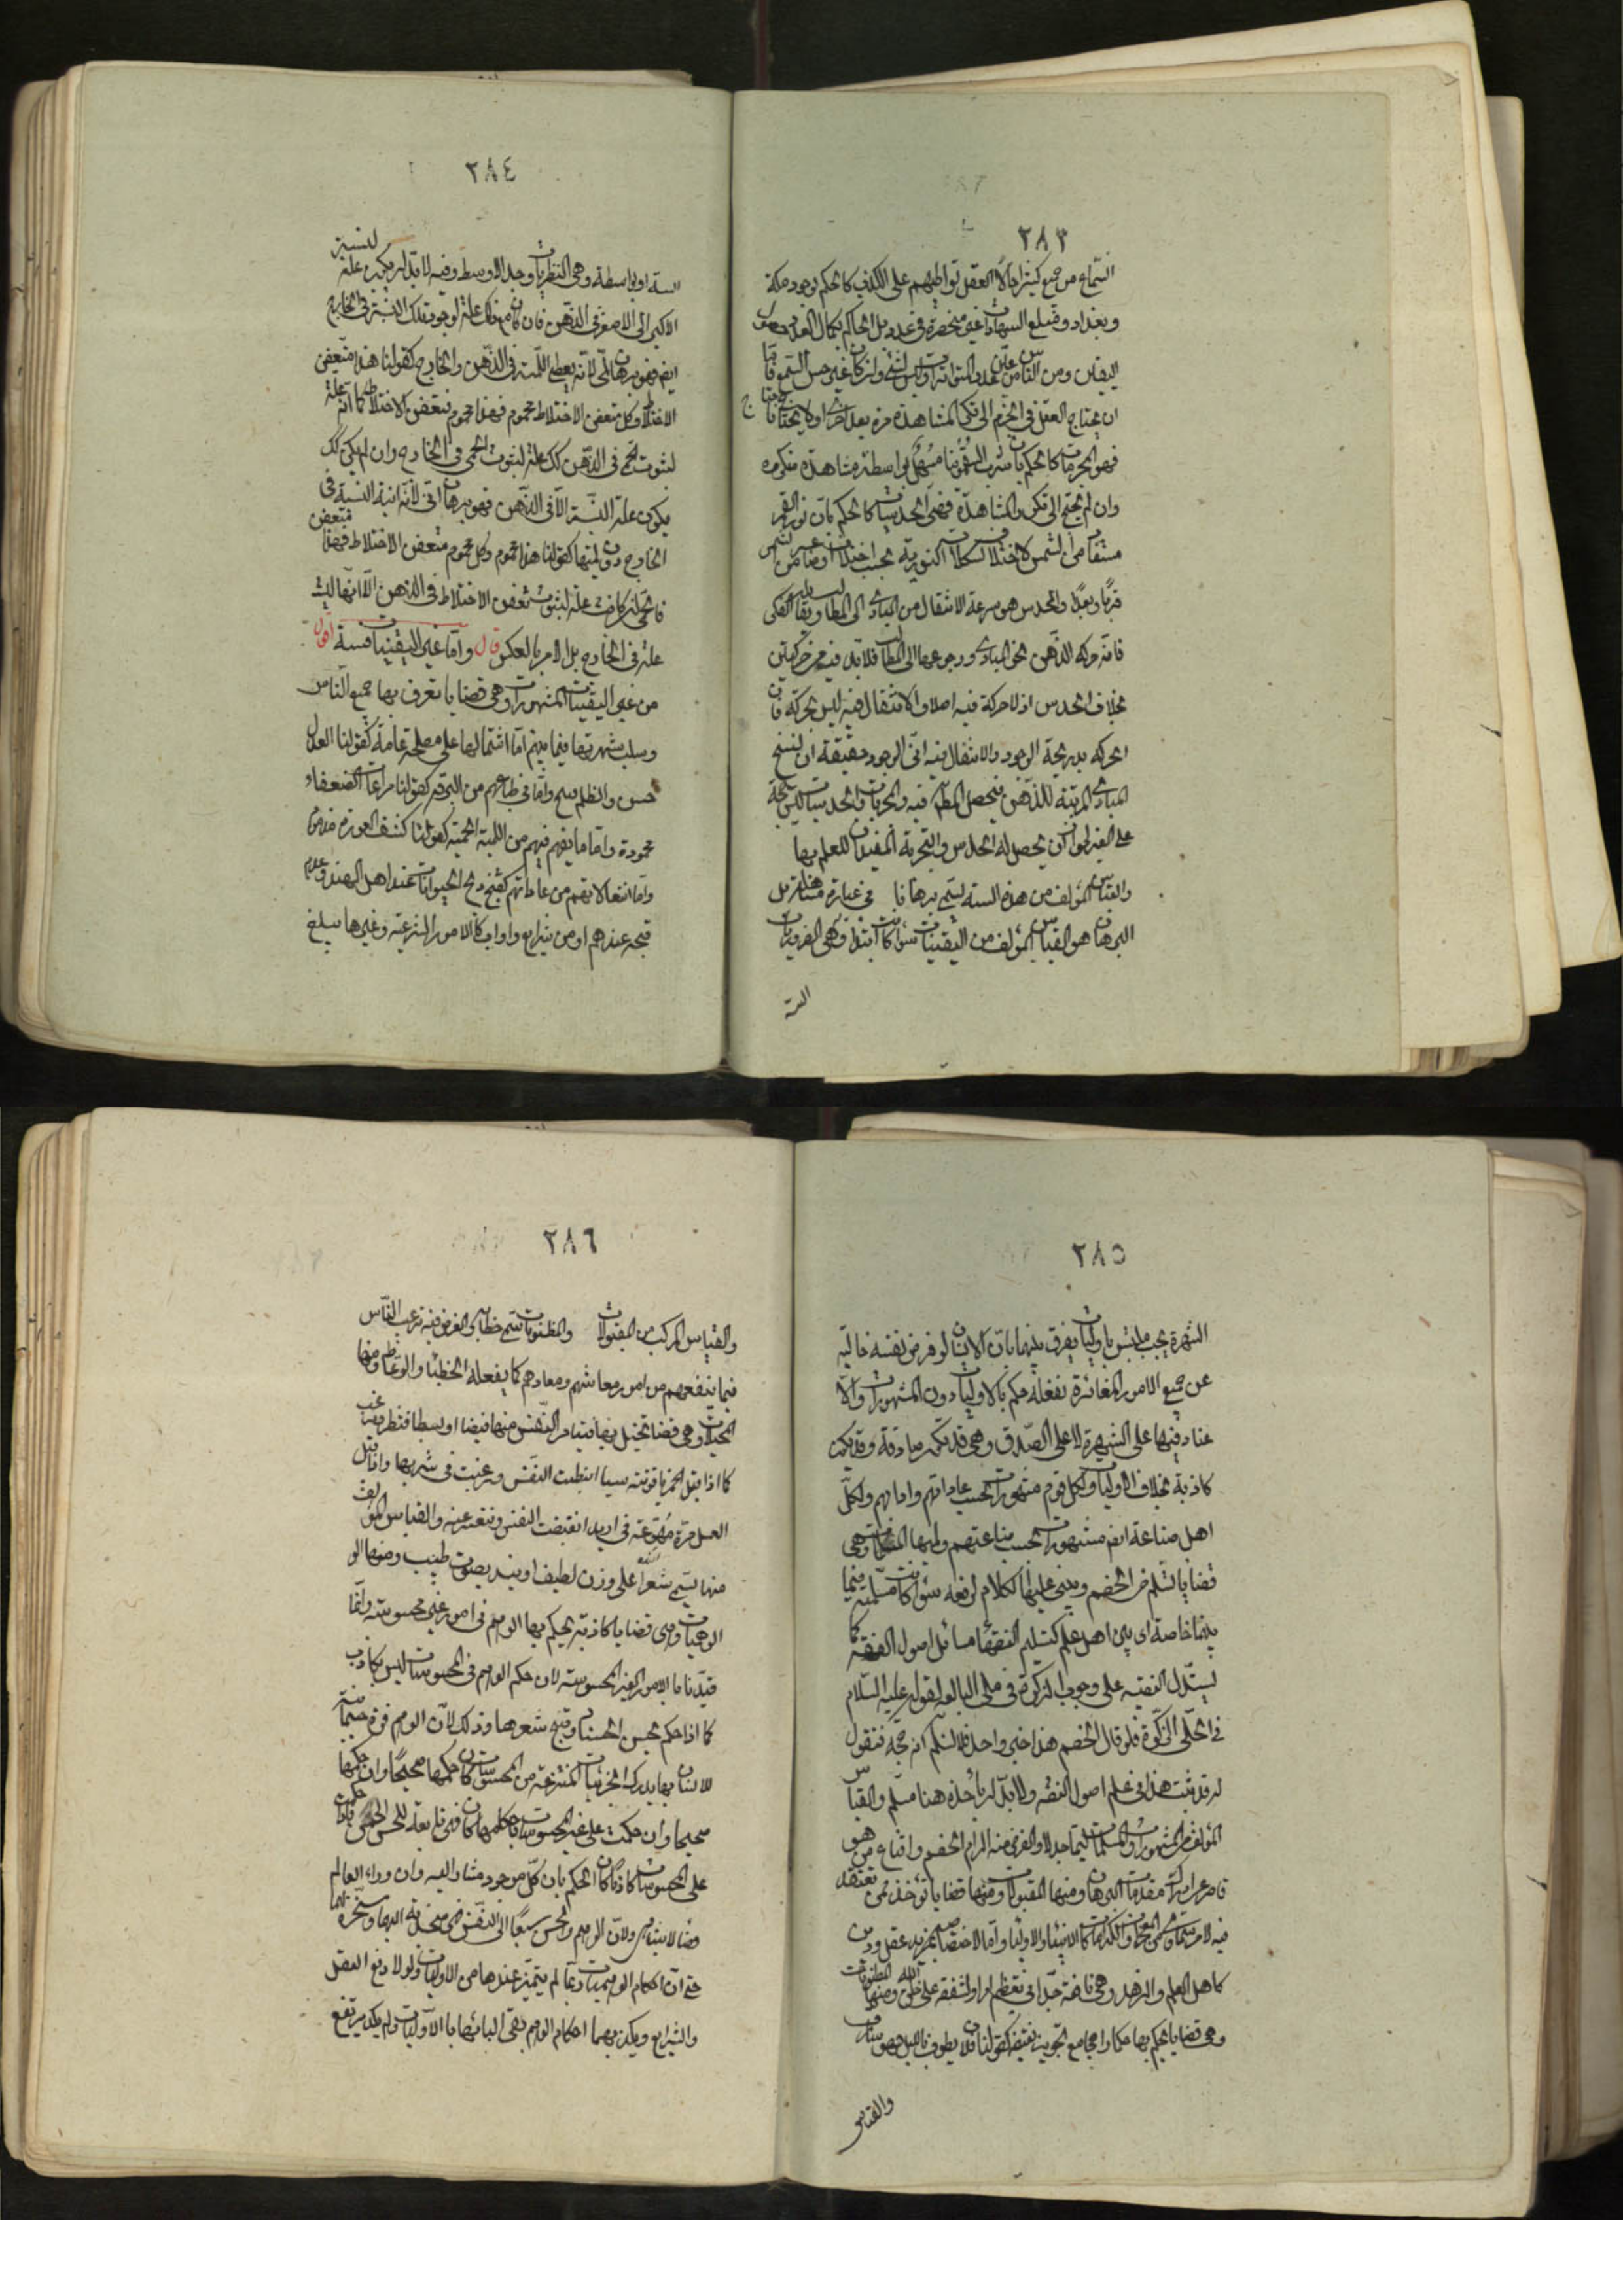 ٢٨٣
السماع من جمع كثير احال العقل تواطيهم على الكذب كالحكم بوجود مكة
وبغداد ومبلغ الشهادات غير منحصرة في عدد بل الحاكم بكمال العدد حصول
اليقين ومن الناس من عين عدد المتواترات وليس بشئ وان كان غير حس السمع فاما
ان يحتاج العقل في الجزم الى تكرر المشاهدة مرة بعد اخرى او لا يحتاج فان احتاج
فهو المجربات كالحكم بان شرب السقمونيا مسهل بواسطة مشاهدة متكررة
وان لم يحتج الى تكرر المشاهدة فهي الحدسيات كالحكم بان نور القمر
مستفاد من الشمس لاختلاف تشكلاته النورية بحسب اختلاف اوضاعه من الشمس
قربا وبعدا والحدس هو سرعة الانتقال من المبادي الى المطالب ويقابله الفكر
فانه حركة الذهن نحو المبادي ورجوعها الى المطالب فلا بد فيه من حركتين
بخلاف الحدس اذ لا حركة فيه اصلا والانتقال فيه ليس بحركة فان
الحركة تدريجية الوجود والانتقال فيه اني الوجود حقيقة ان تسنح
المبادي المرتبة للذهن فيحصل المطلوب فيه والمجربات والحدسيات ليس بحجة
على الغير لجواز ان لا يحصل له الحدس والتجربة المفيدان للعلم بها
والقياس المؤلف من هذه الستة يسمى برهانا في عبارة مساهلة بل
البرهان هو القياس المؤلف من اليقينيات سواء كانت ابتداء وهي الضروريات
الستة
٢٨٤
الستة او بواسطة وهي النظريات وحد الاوسط فيه لا بد ان يكون علة لنسبة
الاكبر الى الاصغر في الذهن فان كان مع ذلك علة لوجود تلك النسبة في الخارج
ايضا فهو برهان لمي لانه يعطي اللمية في الذهن والخارج كقولنا هذا متعفن
الاخلاط وكل متعفن الاخلاط محموم فهذا محموم فتعفن الاخلاط كما انه علة
لثبوت الحمى في الذهن كذلك علة لثبوت الحمى في الخارج وان لم يكن كذلك
يكون علة النسبة الا في الذهن فهو برهان اني لانه انية النسبة في
الخارج دون لميتها كقولنا هذا محموم وكل محموم متعفن الاخلاط فهذا متعفن
فالحمى وان كانت علة لثبوت تعفن الاخلاط في الذهن الا انها ليست
علة في الخارج بل الامر بالعكس قال واما غير اليقينيات فستة اقول
من غير اليقينيات المشهورات وهي قضايا يعترف بها جميع الناس
وسبب شهرتها فيما بينهم اما اشتمالها على مصلحة عامة كقولنا العدل
حسن والظلم قبيح واما في طباعهم من الرقة كقولنا مراعات الضعفاء
محمودة واما ما فيهم من الحمية كقولنا كشف العورة مذموم
واما انفعالاتهم من عاداتهم كقبح ذبح الحيوانات عند اهل الهند وعدم
قبحه عندهم او من شرايع واداب كالامور الشرعية وغيرها يبلغ
٢٨٥
الشهرة بحيث يلتبس باوليات يفرق بينهما بان الانسان لو فرض نفسه خالية
عن جميع الامور المغائرة لعقله حكم بالاوليات دون المشهورات والا
وهي قد تكون صادقة وقد يكون
كاذبة بخلاف الاوليات ولكل قوم مشهورات بحسب عاداتهم وادابهم ولكل
اهل صناعة ايضا مشهورات بحسب صناعتهم ومنها المسلمات وهي
قضايا تسلم من الخصم ويبنى عليها الكلام لدفعه سواء كانت مسلمة فيما
بينهما خاصة او بين اهل علم كتسليم الفقهاء مسائل اصول الفقه كما
يستدل الفقيه على وجوب الزكوة في حلي البالغة لقوله عليه السلام
في الحلي الزكوة فلو قال الخصم هذا خبر واحد فلا نسلم انه حجة فنقول
له قد ثبت هذا في علم اصول الفقه ولا بد ان ناخذه هنا مسلما والقياس
المؤلف من المشهورات والمسلمات يسمى جدلا والغرض منه الزام الخصم واقناع من هو
قاصر عن ادراك مقدمات البرهان ومنها المقبولات وهي قضايا تؤخذ ممن يعتقد
فيه لامر سماوي من المعجزات والكرامات كالانبياء والاولياء واما لاختصاصه بمزيد عقل ودين
كاهل العلم والزهد وهي نافعة جدا في تعظيم امر الله والشفقة على خلق الله ومنها المظنونات
وهي قضايا يحكم بها حكما راجحا مع تجويز نقيضه كقولنا فلان يطوف بالليل فهو سارق
والقياس
٢٨٦
والقياس المركب من المقبولات والمظنونات يسمى خطابة والغرض منه ترغيب الناس
فيما ينفعهم من امور معاشهم ومعادهم كما يفعله الخطباء والوعاظ ومنها
المخيلات وهي قضايا تخيل بها فيتاثر النفس منها قبضا او بسطا فتنفر او ترغب
كما اذا قيل الخمر ياقوتة سيالة انبسطت النفس ورغبت في شربها واذا قيل
العسل مرة مهوعة انقبضت النفس وتنفر عنه والقياس المؤلف
منها يسمى شعرا على وزن لطيف او ينشد بصوت طيب ومنها
الوهميات وهي قضايا كاذبة يحكم بها الوهم في امور غير محسوسة وانما
قيدنا بالامور الغير المحسوسة لان حكم الوهم في المحسوسات ليس بكاذب
كما اذا حكم بحسن الحسناء وقبح شوهاء وذلك لان الوهم قوة جسمانية
للانسان بها يدرك الجزئيات المنتزعة من المحسوسات كان حكمها صحيحا وان
صحيحا وان حكمت على غير المحسوسات
كاذبا كالحكم بان كل موجود مشار اليه وان وراء العالم
فضاء لا يتناهى ولان الوهم والحس سبقا الى النفس فهي منجذبة اليهما ومسخرة لهما
حتى ان احكام الوهميات ربما لم يتميز عندها من الاوليات ولولا دفع العقل
والشرايع وتكذيبهما احكام الوهم بقي التباسها بالاوليات ولم يكد يرتفع